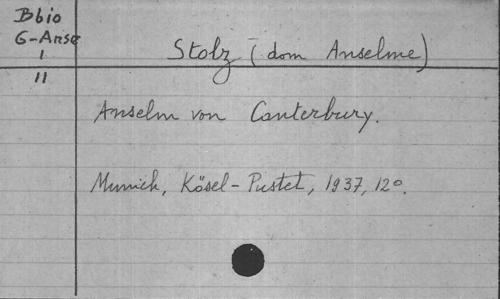 Bbio
G-Anse
1
11
Stolz (dom Anselme)
Anselm von Canterbury.
Munich, Kösel-Pustet, 1937, 12°.